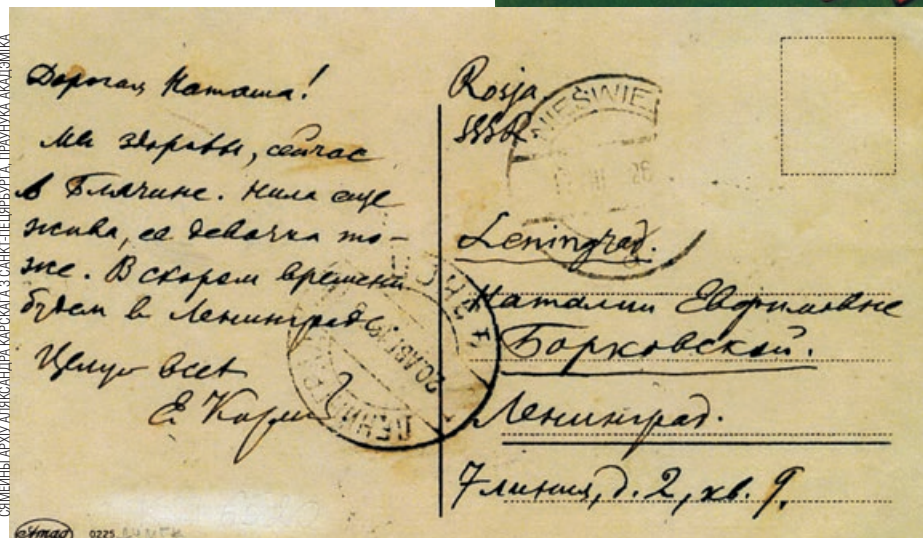 СЯМЕЙНЫ АРХІЎ АЛЯКСАНДРА КАРСКАГА З САНКТ-ПЕЦЯРБУРГА, ПРАЎНУКА АКАДЭМІКА
Дорогая Наташа!
Мы здоровы, сейчас
в Блячине. Нила еще
жива, ее девочка то-
же. В скором времени
будем в Ленинграде
Целую всех
Е Карск
Rosja
SSSR
NIEŚWIE
26
Leningrad.
Наталии Евфимовне
Борковской.
Ленинград.
7 линия, д. 2, кв. 9.
ЛЕНИНГРАД
20
0225